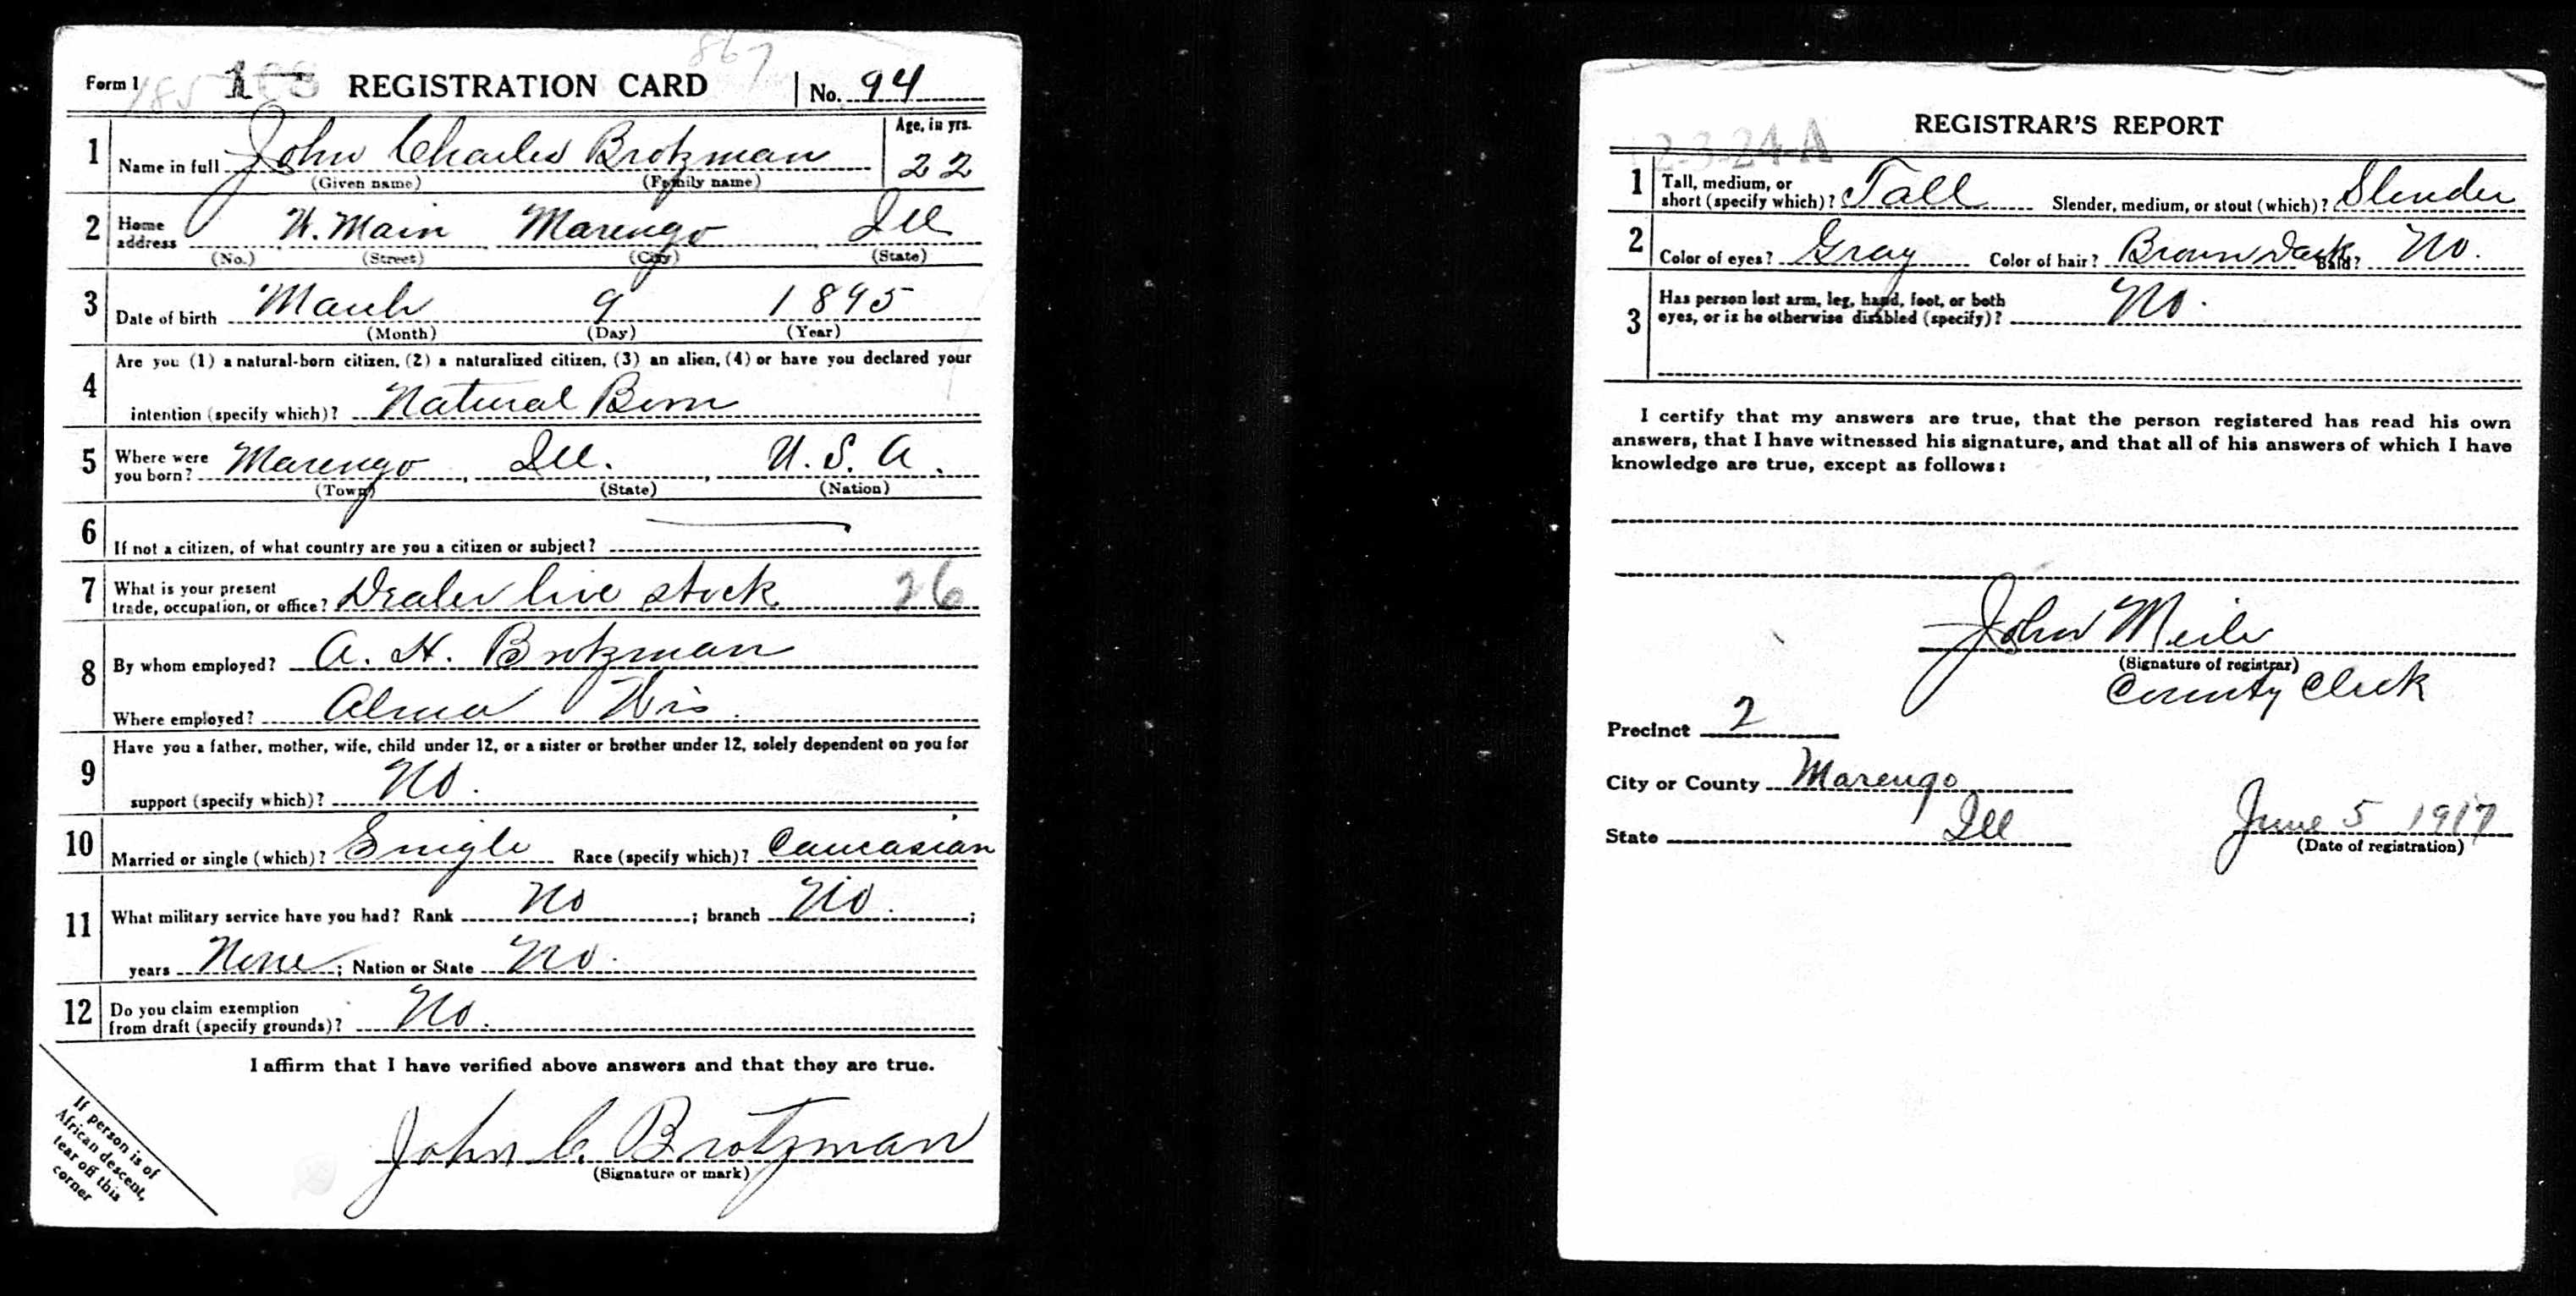 867
Form 1 185 REGISTRATION CARD No. 94
1 Name in full John Charles Brotzman Age, in yrs. 22
(Given name) (Family name)
2 Home address W. Main Marengo Ill
(No.) (Street) (City) (State)
3 Date of birth March 9 1895
(Month) (Day) (Year)
4 Are you (1) a natural-born citizen, (2) a naturalized citizen, (3) an alien, (4) or have you declared your
intention (specify which)? Natural Born
5 Where were you born? Marengo, Ill., U. S. A.
(Town) (State) (Nation)
6 If not a citizen, of what country are you a citizen or subject?
7 What is your present trade, occupation, or office? Dealer live stock 26
8 By whom employed? A. H. Brotzman
Where employed? Alma Wis.
9 Have you a father, mother, wife, child under 12, or a sister or brother under 12, solely dependent on you for
support (specify which)? No.
10 Married or single (which)? Single Race (specify which)? Caucasian
11 What military service have you had? Rank No ; branch No. ;
years None ; Nation or State No.
12 Do you claim exemption from draft (specify grounds)? No.
I affirm that I have verified above answers and that they are true.
John C. Brotzman
(Signature or mark)
If person is of
African descent,
tear off this
corner
REGISTRAR'S REPORT
12-3-24-A
1 Tall, medium, or short (specify which)? Tall Slender, medium, or stout (which)? Slender
2 Color of eyes? Gray Color of hair? Brown Dark Bald? No.
3 Has person lost arm, leg, hand, foot, or both
eyes, or is he otherwise disabled (specify)? No.
I certify that my answers are true, that the person registered has read his own
answers, that I have witnessed his signature, and that all of his answers of which I have
knowledge are true, except as follows:
John
(Signature of registrar)
County Clerk
Precinct 2
City or County Marengo
State Ill
June 5 1917
(Date of registration)